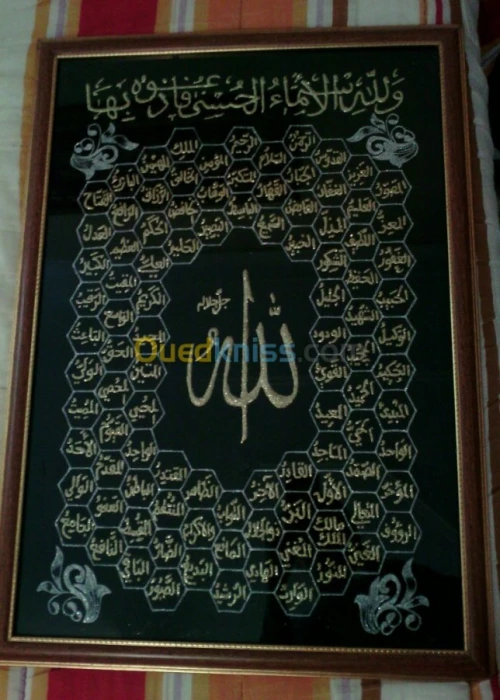 ولله الأسماء الحسنى فادعوه بها
الرحمن
الرحيم
الملك
القدوس
السلام
المؤمن
المهيمن
العزيز
الجبار
المتكبر
الخالق
البارئ
المصور
الغفار
القهار
الوهاب
الرزاق
الفتاح
العليم
القابض
الباسط
الخافض
الرافع
المعز
المذل
السميع
البصير
الحكم
العدل
اللطيف
الخبير
الحليم
العظيم
الغفور
الشكور
العلي
الكبير
الحفيظ
المقيت
الحسيب
الجليل
الكريم
الرقيب
جل جلاله
الله
الواسع
الشهيد
الودود
الباعث
الوكيل
الحق
القوي
المتين
الولي
المحصي
الحميد
المبدئ
المعيد
المحيي
المميت
الحي
القيوم
الواجد
الماجد
الواحد
الأحد
الصمد
القادر
المقتدر
المقدم
المؤخر
الأول
الآخر
الظاهر
الباطن
الوالي
المتعالي
البر
التواب
المنتقم
العفو
الرؤوف
مالك الملك
ذو الجلال والإكرام
المقسط
الجامع
الغني
المغني
المانع
الضار
النافع
النور
الهادي
البديع
الباقي
الوارث
الرشيد
الصبور
Ouedkniss.com